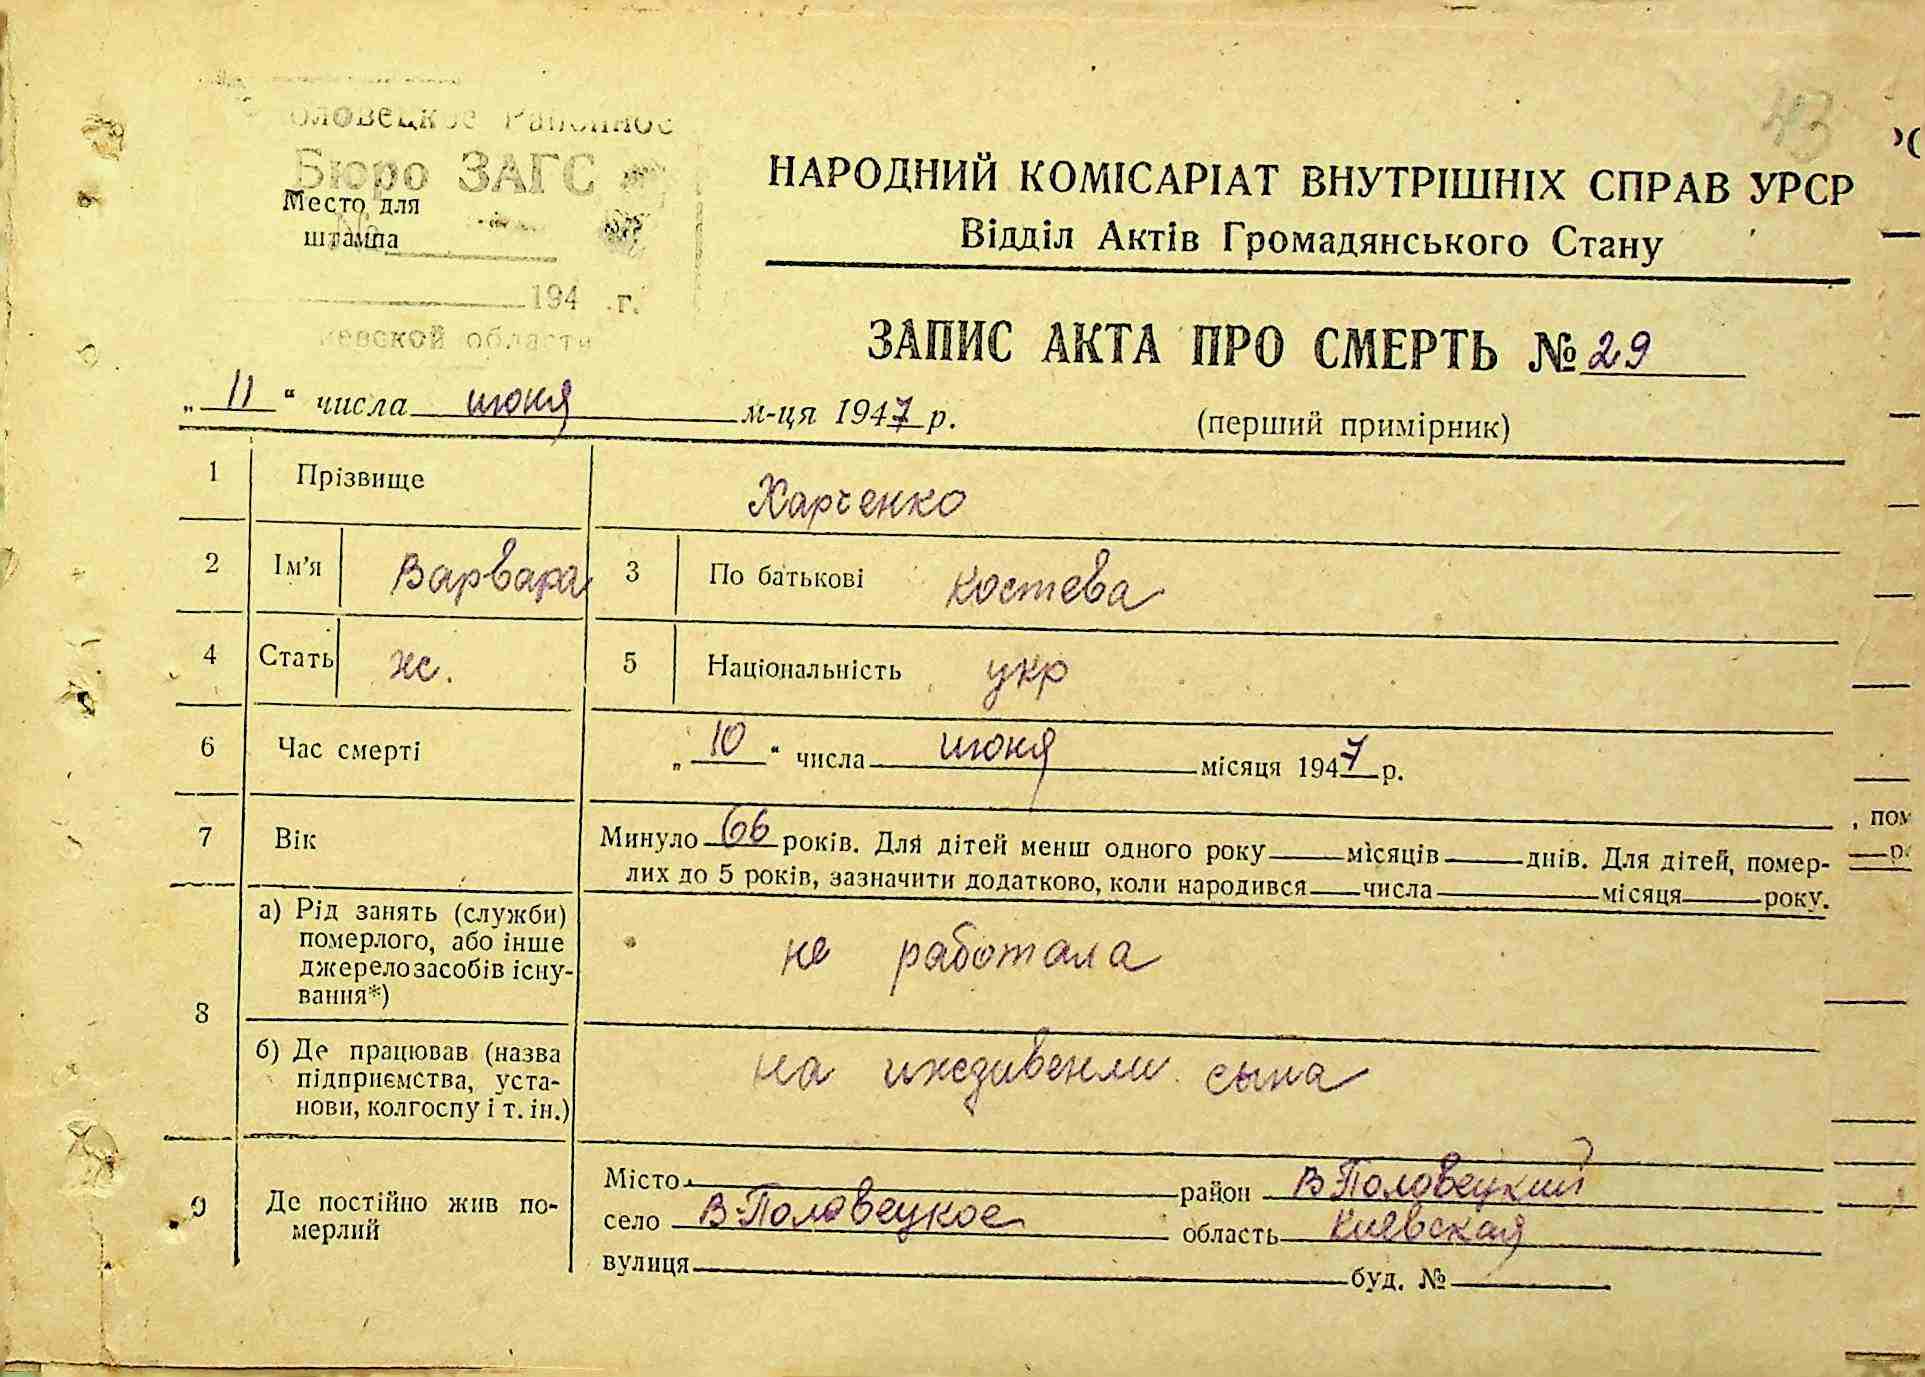 43
Районное
Бюро ЗАГС
Место для
штампа
194 г.
области
НАРОДНИЙ КОМІСАРІАТ ВНУТРІШНІХ СПРАВ УРСР
Відділ Актів Громадянського Стану
ЗАПИС АКТА ПРО СМЕРТЬ № 29
„ 11 “ числа июня м-ця 1947 р.
(перший примірник)
1 Прізвище Харченко
2 Ім'я Варвара 3 По батькові Костева
4 Стать ж. 5 Національність укр
6 Час смерті „ 10 “ числа июня місяця 1947 р.
7 Вік Минуло 66 років. Для дітей менш одного року місяців днів. Для дітей, помер-
лих до 5 років, зазначити додатково, коли народився числа місяця року.
8 а) Рід занять (служби)
померлого, або інше
джерело засобів існу-
вання*)
не работала
б) Де працював (назва
підприємства, уста-
нови, колгоспу і т. ін.)
на иждивении сына
9 Де постійно жив по-
мерлий
Місто район В Половецкий
село В-Половецкое область Киевская
вулиця буд. №